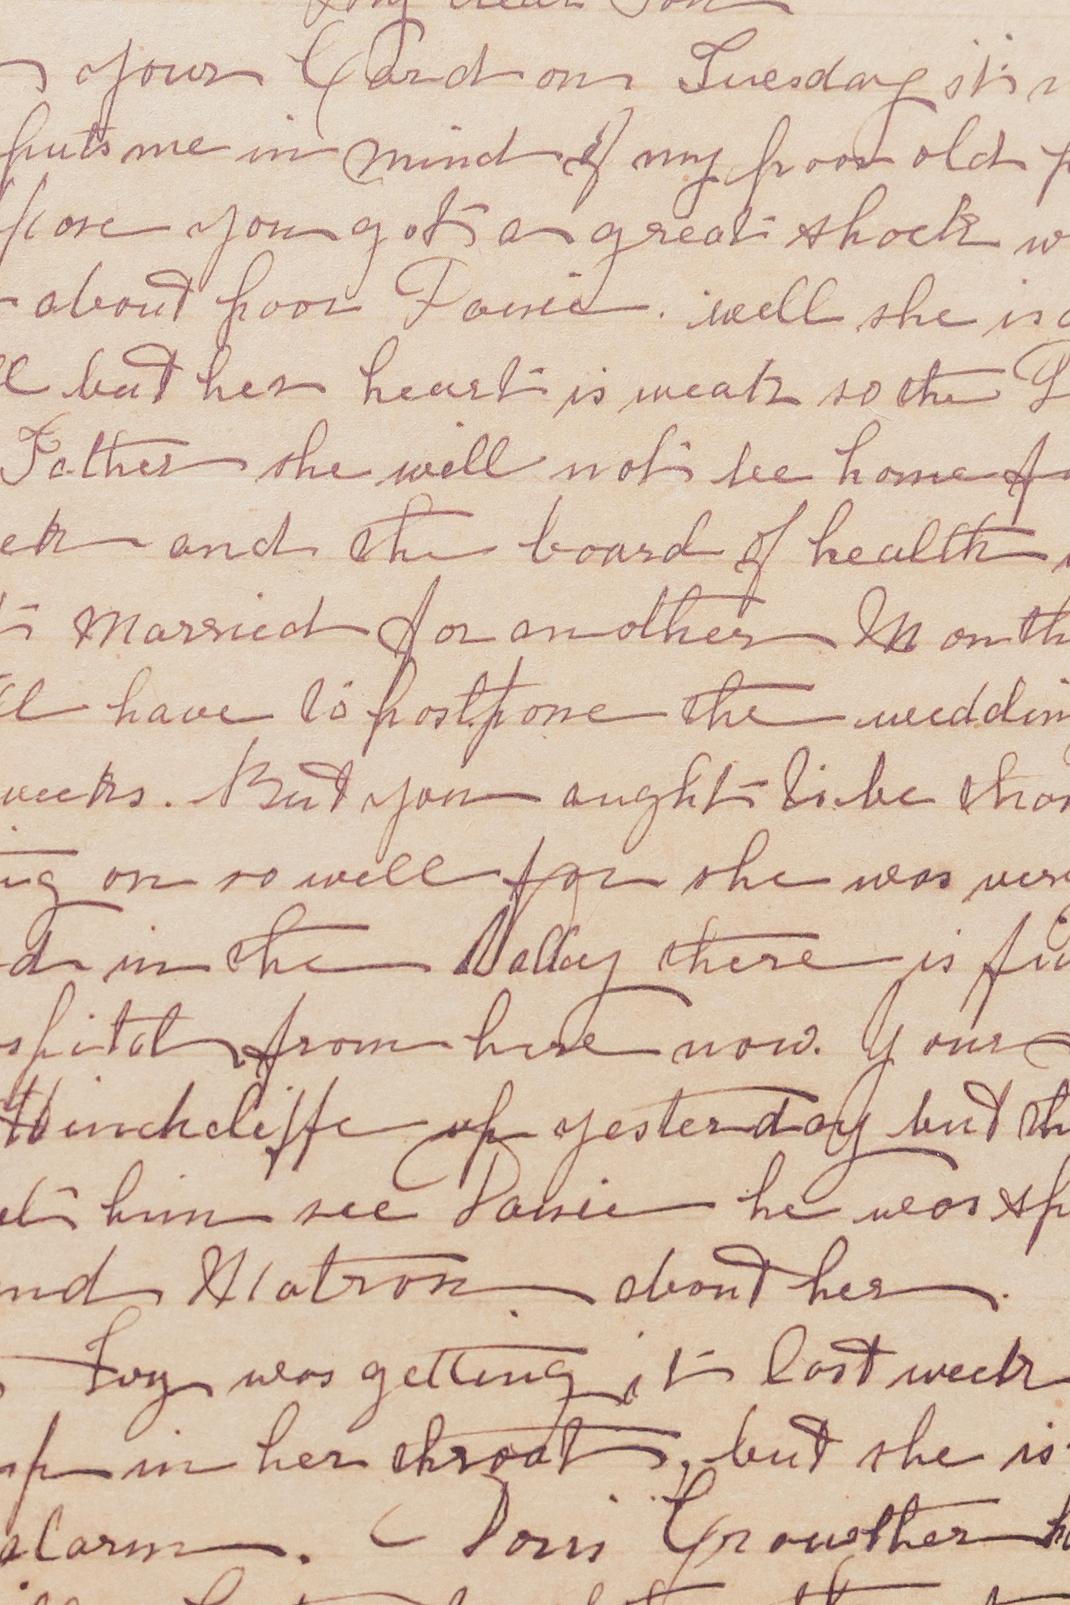 My dear Son
your Card on Tuesday it
puts me in mind of my poor old
pose you got a great shock w
about poor Janie. well she is
ll but her heart is weak so the
Father she will not be home f
ek and the board of health
t married for another Month
ll have to postpone the weddin
weeks. But you aught to be than
ing on so well for she was very
d in the Valley there is fi
spital from here now. Your
Hinchcliffe up yesterday but th
et him see Janie he was sp
nd Matron about her.
Ivy was getting it last week
up in her throat, but she is
alarm. Doris Growther